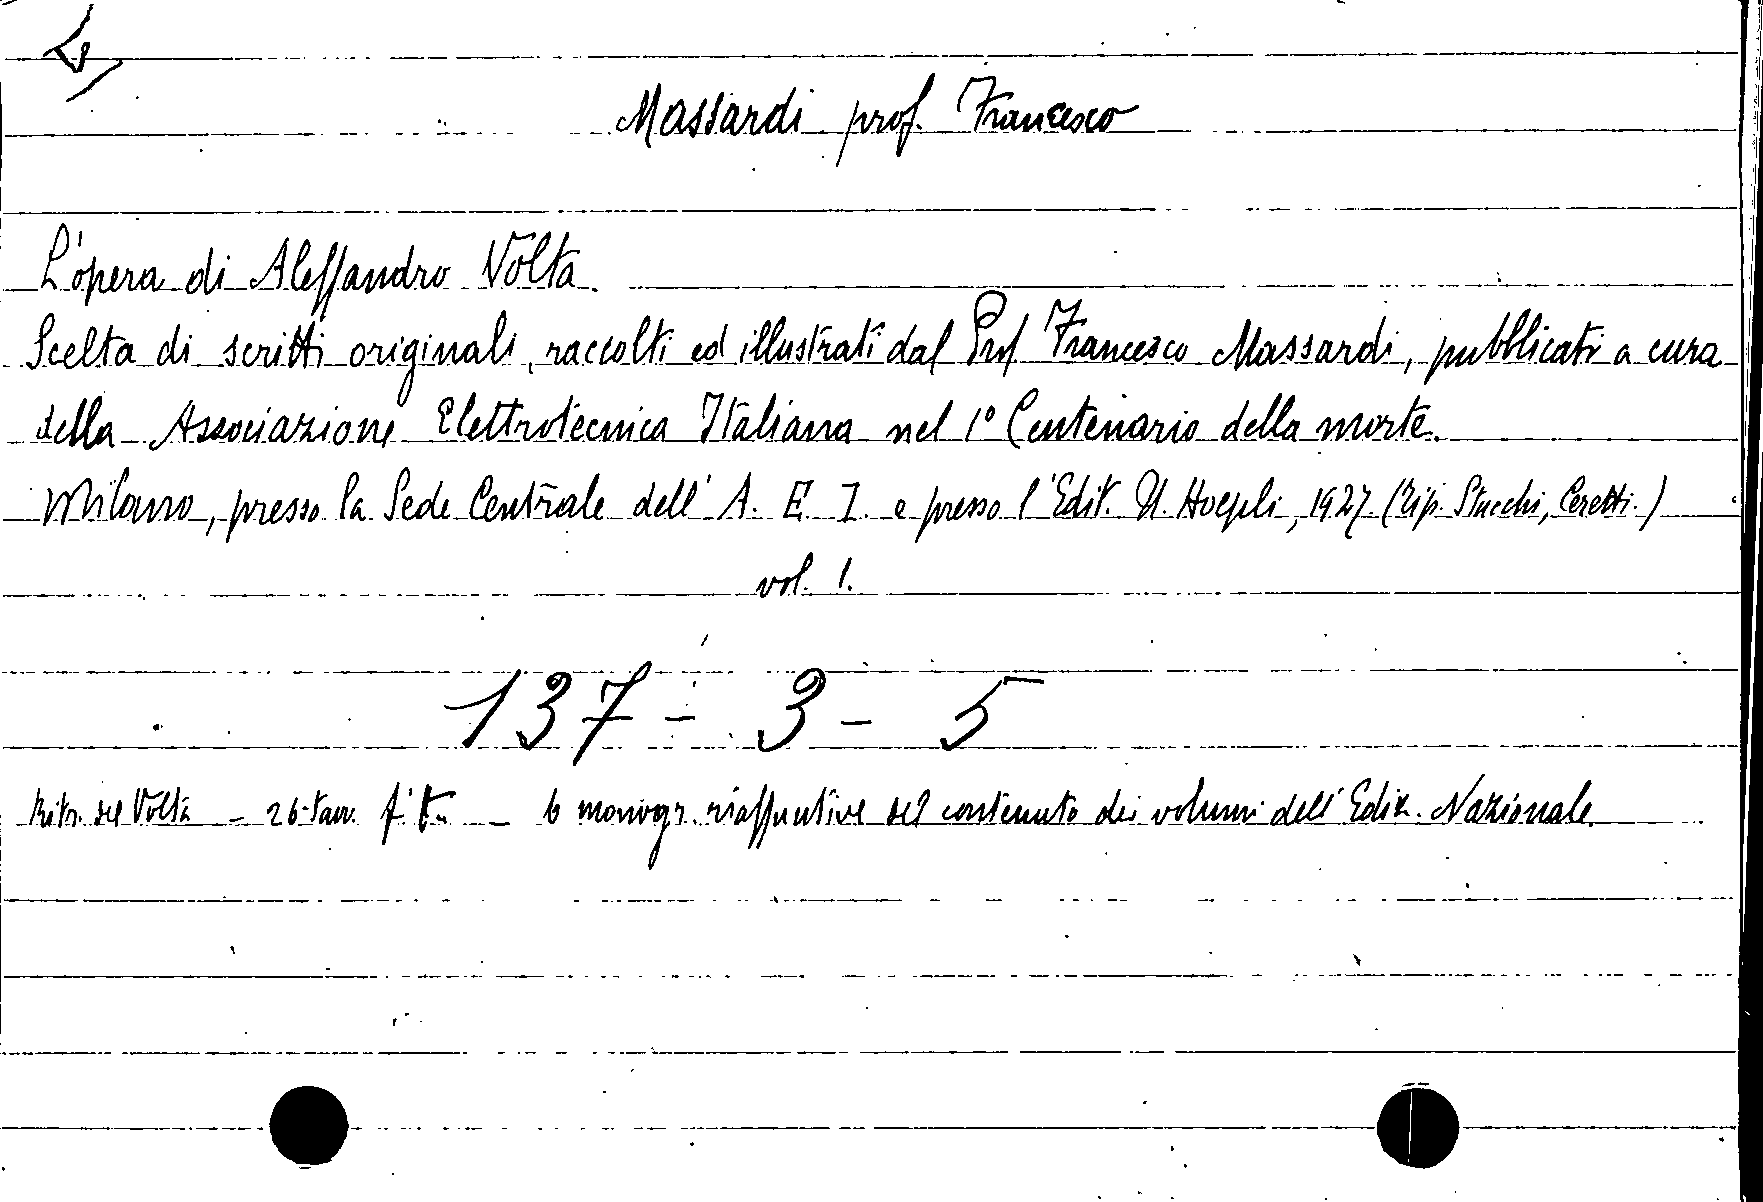 Massardi prof. Francesco
L'opera di Alessandro Volta.
Scelta di scritti originali, raccolti ed illustrati dal Prof. Francesco Massardi, pubblicati a cura
della Associazione Elettrotecnica Italiana nel 1º Centenario della morte.
Milano, presso la Sede Centrale dell' A. E. I. e presso l'Edit. U. Hoepli, 1927 (Tip. Stucchi, Ceretti.)
vol. 1.
137 - 3 - 5
Ritr. del Volta - 26 tav. f. t. - 6 monogr. riassuntive del contenuto dei volumi dell' Ediz. Nazionale.